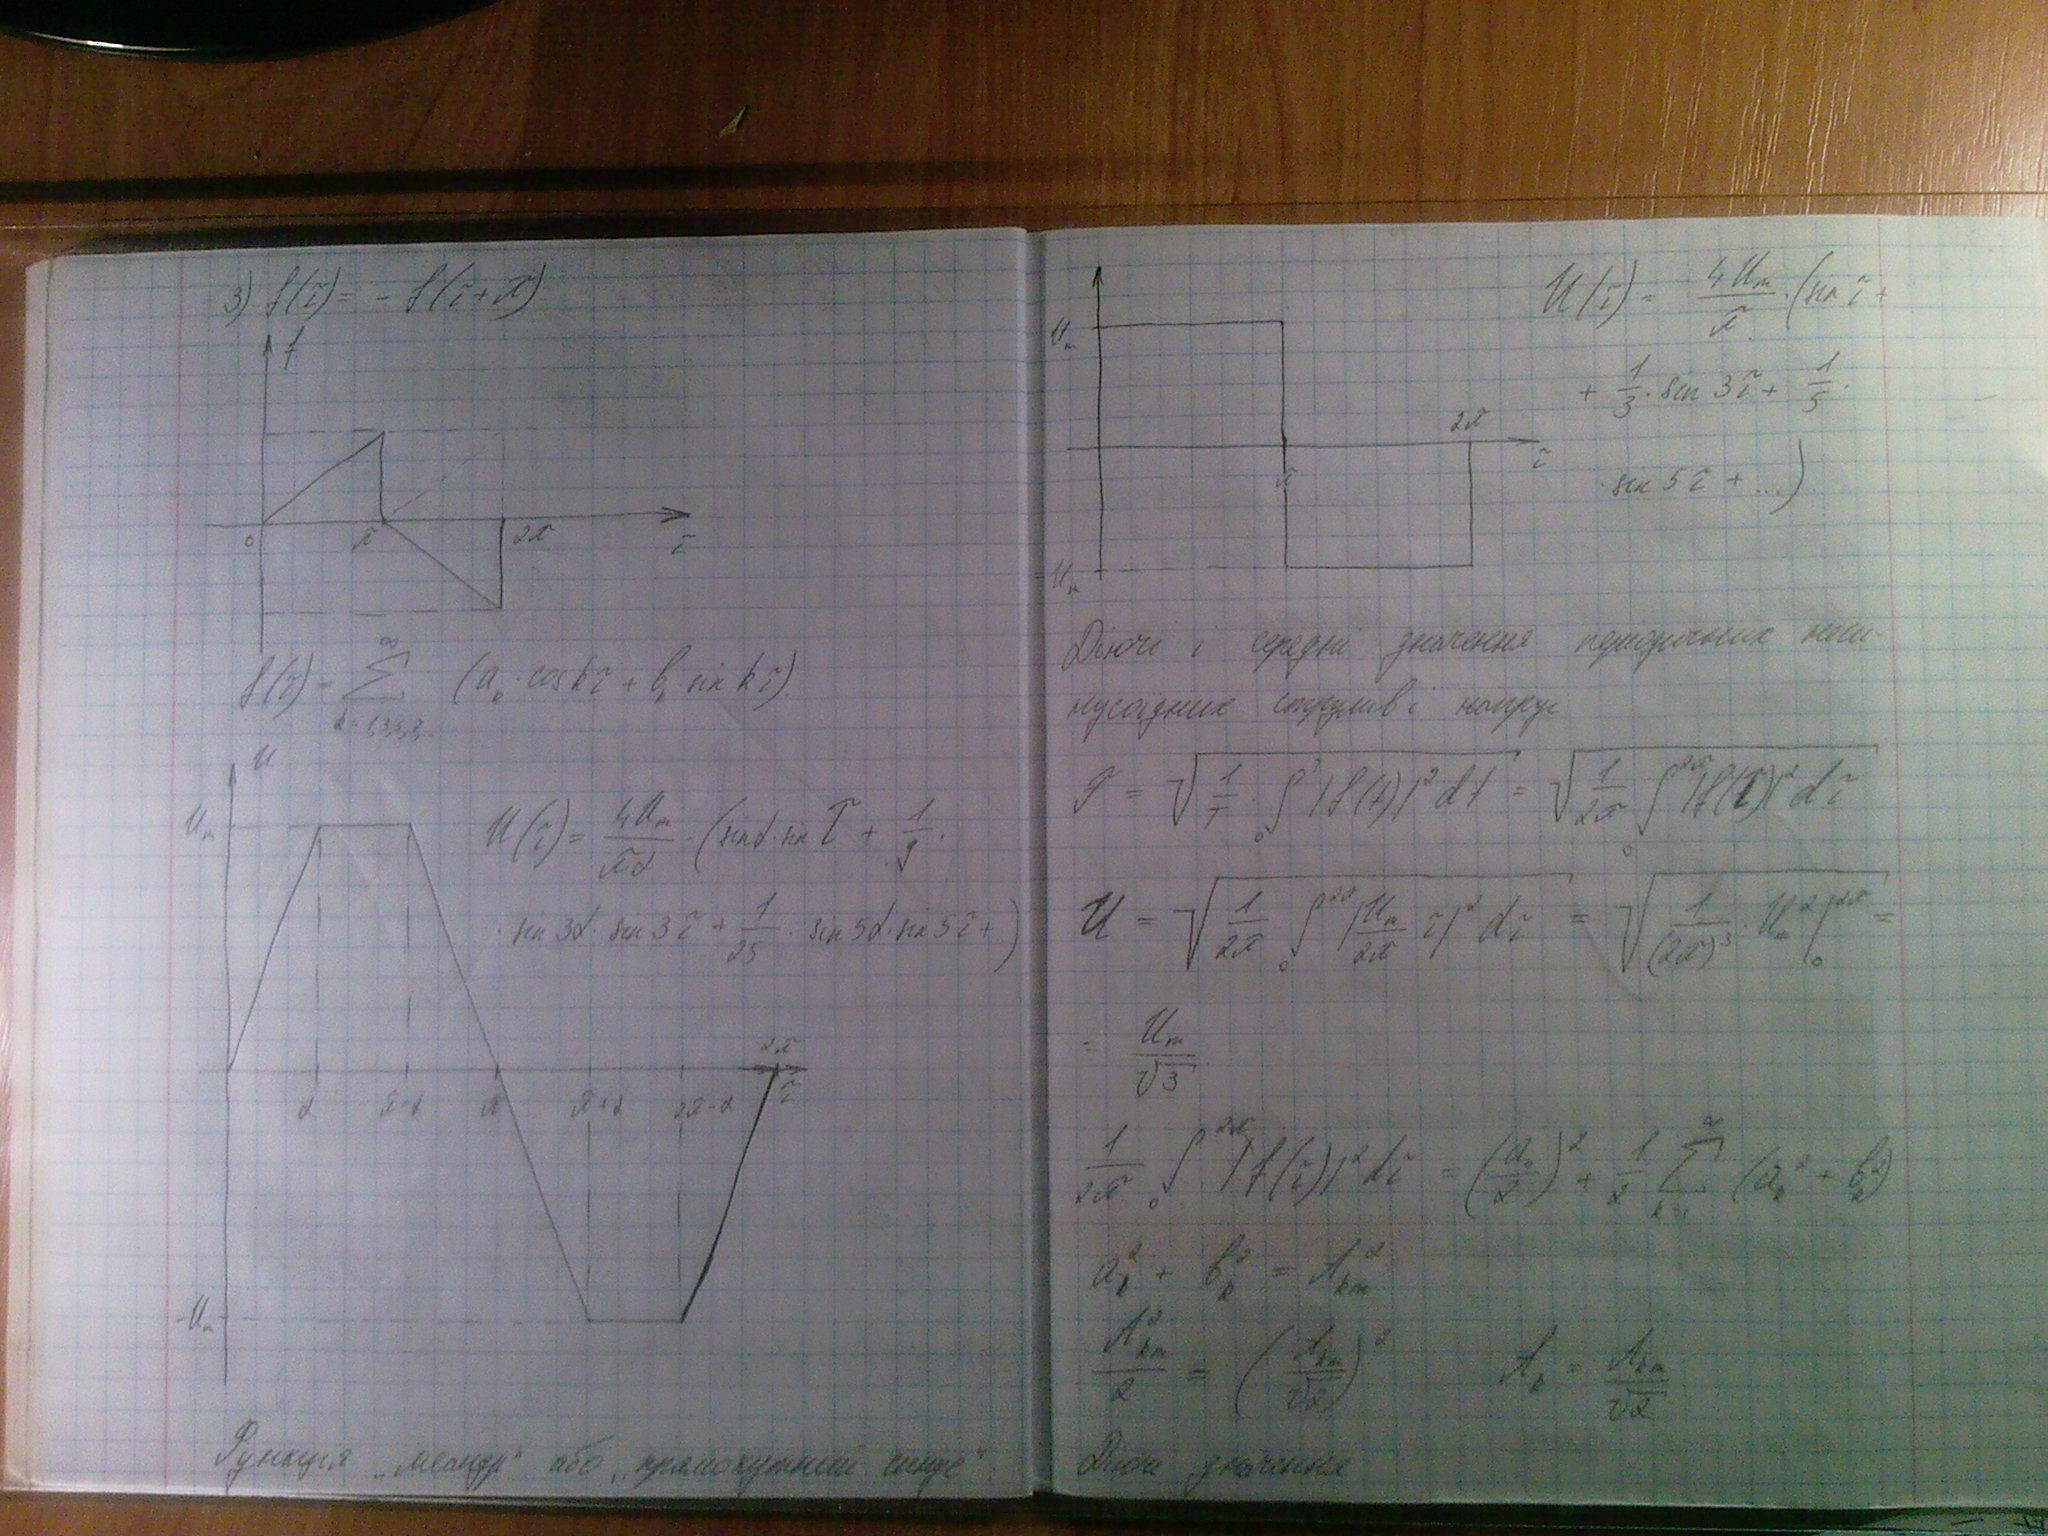 3) f(τ) = - f(τ+π)
f
0 π 2π τ
f(τ) = ∑ (aₖ · cos kτ + bₖ sin kτ)
∞
U
Uₘ
U(τ) = 4Uₘ/πα · (sin α · sin τ + 1/9 ·
· sin 3α · sin 3τ + 1/25 · sin 5α · sin 5τ + )
2π
α π-α π π+α 2π-α τ
-Uₘ
Функція „меандр" або „прямокутний синус".
Uₘ
U(τ) = 4Uₘ/π · (sin τ +
+ 1/3 · sin 3τ + 1/5 ·
· sin 5τ + ...)
2π
π τ
-Uₘ
Діючі і середні значення періодичних неси-
нусоїдних струмів і напруг
F = √(1/T · ∫₀ᵀ |f(t)|² dt) = √(1/2π ∫₀²π |f(τ)|² dτ)
U = √(1/2π ∫₀²π |Uₘ/2π τ|² dτ) = √(1/(2π)³ · Uₘ² |₀²π) =
= Uₘ/√3
1/2π ∫₀²π |f(τ)|² dτ = (a₀/2)² + 1/2 ∑ₖ₌₁^∞ (aₖ² + bₖ²)
aₖ² + bₖ² = Aₖₘ²
Aₖₘ²/2 = (Aₖₘ/√2)² Aₖ = Aₖₘ/√2
Діючі значення